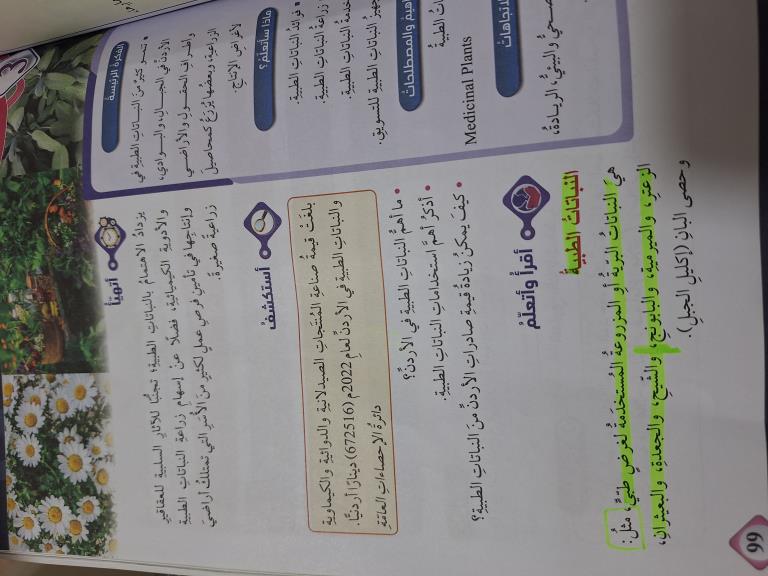 أتهيّأُ
يزدادُ الاهتمامُ بالنباتاتِ الطبيةِ، تجنبًا للآثارِ السلبيةِ للعقاقيرِ
والأدويةِ الكيميائيةِ، فضلًا عن إسهامِ زراعةِ النباتاتِ الطبيةِ
وإنتاجِها في تأمينِ فرصِ عملٍ لكثيرٍ منَ الأُسَرِ التي تمتلكُ أراضيَ
زراعيةً صغيرةً.
أستكشفُ
بلغَتْ قيمةُ صناعةِ المُنتَجاتِ الصيدلانيةِ والدوائيةِ والكيماويةِ
والنباتاتِ الطبيةِ في الأردنِّ لعامِ 2022م (672516) دينارًا أردنيًّا.
دائرةُ الإحصاءاتِ العامّةِ
• ما أهمُّ النباتاتِ الطبيةِ في الأردنِّ؟
• أذكرُ أهمَّ استخداماتِ النباتاتِ الطبيةِ.
• كيفَ يمكنُ زيادةُ قيمةِ صادراتِ الأردنِّ منَ النباتاتِ الطبيةِ؟
أقرأُ وأتعلّمُ
النباتاتُ الطبيةُ
هيَ النباتاتُ البريّةُ أو المزروعةُ المُستخدَمةُ لغرضٍ طبيٍّ، مثلُ:
الزعترِ، والميرميةِ، والبابونجِ، والشيحِ، والجعدةِ، والبعيثرانِ،
وحصى البانِ (إكليلِ الجبلِ).
الفكرةُ الرئيسةُ
• تنمو كثيرٌ من النباتاتِ الطبيةِ في
الأردنِّ في الجبالِ، والبوادي،
وأطرافِ الحقولِ والأراضي
الزراعيةِ، وبعضُها يُزرَعُ كمحاصيلَ
لأغراضِ الإنتاجِ.
ماذا سأتعلمُ؟
• فوائدُ النباتاتِ الطبيةِ.
زراعةُ النباتاتِ الطبيةِ.
خدمةُ النباتاتِ الطبيةِ.
تجهيزُ النباتاتِ الطبيةِ للتسويقِ.
والمصطلحاتُ
الطبيةُ
Medicinal Plants
الاتجاهاتُ
والبيئيُّ، الريادةُ،
99